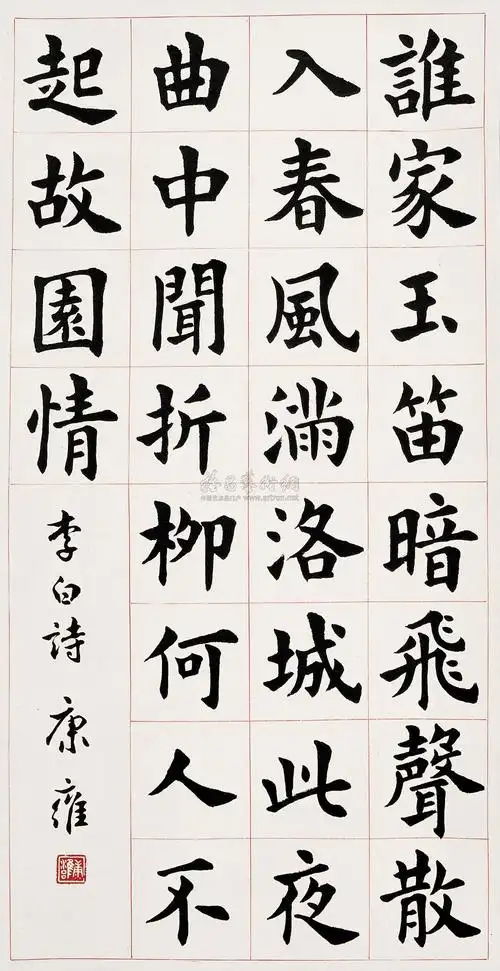 誰家玉笛暗飛聲散
入春風滿洛城此夜
曲中聞折柳何人不
起故園情
李白詩 康雍
www.artron.net